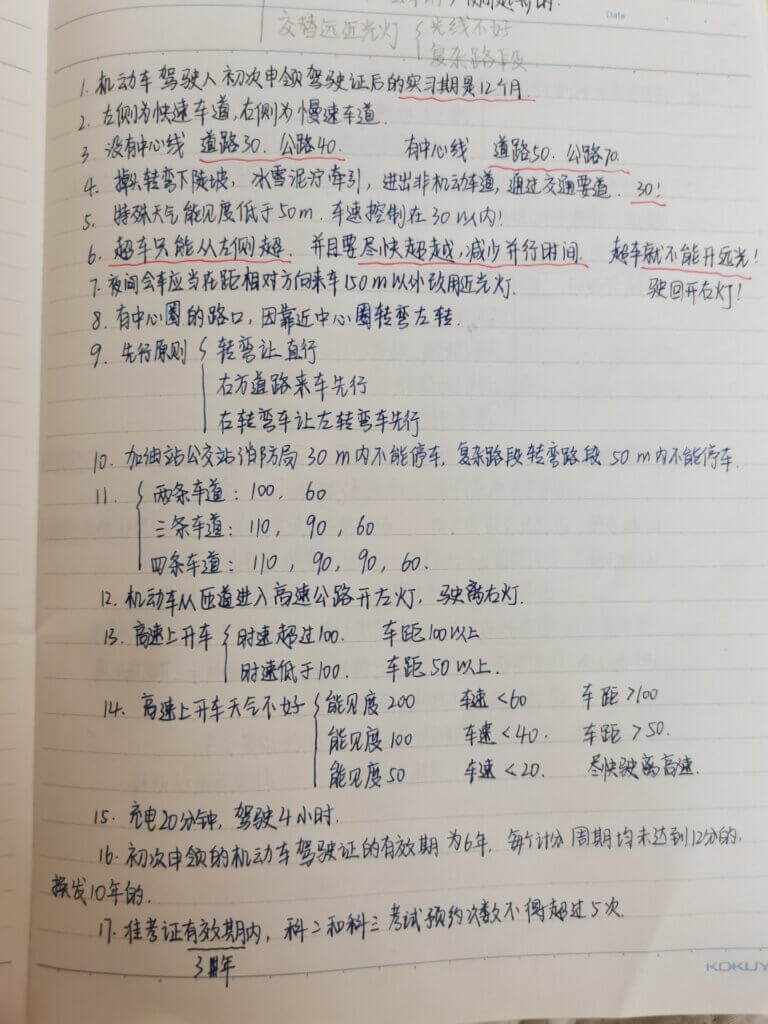 Date
交替远近光灯 { 光线不好
复杂路段
1. 机动车驾驶人初次申领驾驶证后的实习期是12个月.
2. 左侧为快速车道,右侧为慢速车道.
3. 没有中心线 道路30. 公路40. 有中心线 道路50. 公路70.
4. 掉头转弯下陡坡, 冰雪泥泞牵引, 进出非机动车道, 通过交通要道. 30!
5. 特殊天气能见度低于50m. 车速控制在30以内!
6. 超车只能从左侧超. 并且要尽快超越,减少并行时间. 超车就不能开远光!
7. 夜间会车应当在距相对方向来车150m以外改用近光灯. 驶回开右灯!
8. 有中心圈的路口, 因靠近中心圈转弯左转.
9. 先行原则 { 转弯让直行
右方道路来车先行
右转弯车让左转弯车先行
10. 加油站公交站消防局 30 m内不能停车, 复杂路段转弯路段 50 m内不能停车.
11. { 两条车道: 100, 60
三条车道: 110, 90, 60
四条车道: 110, 90, 90, 60.
12. 机动车从匝道进入高速公路开左灯, 驶离右灯.
13. 高速上开车 { 时速超过100. 车距100以上
时速低于100. 车距50以上.
14. 高速上开车天气不好 { 能见度200 车速<60 车距>100
能见度100 车速<40. 车距>50.
能见度50 车速<20. 尽快驶离高速.
15. 充电20分钟, 驾驶4小时.
16. 初次申领的机动车驾驶证的有效期为6年, 每个计分周期均未达到12分的,
换发10年的.
17. 准考证有效期内, 科二和科三考试预约次数不得超过5次.
3年
KOKUY